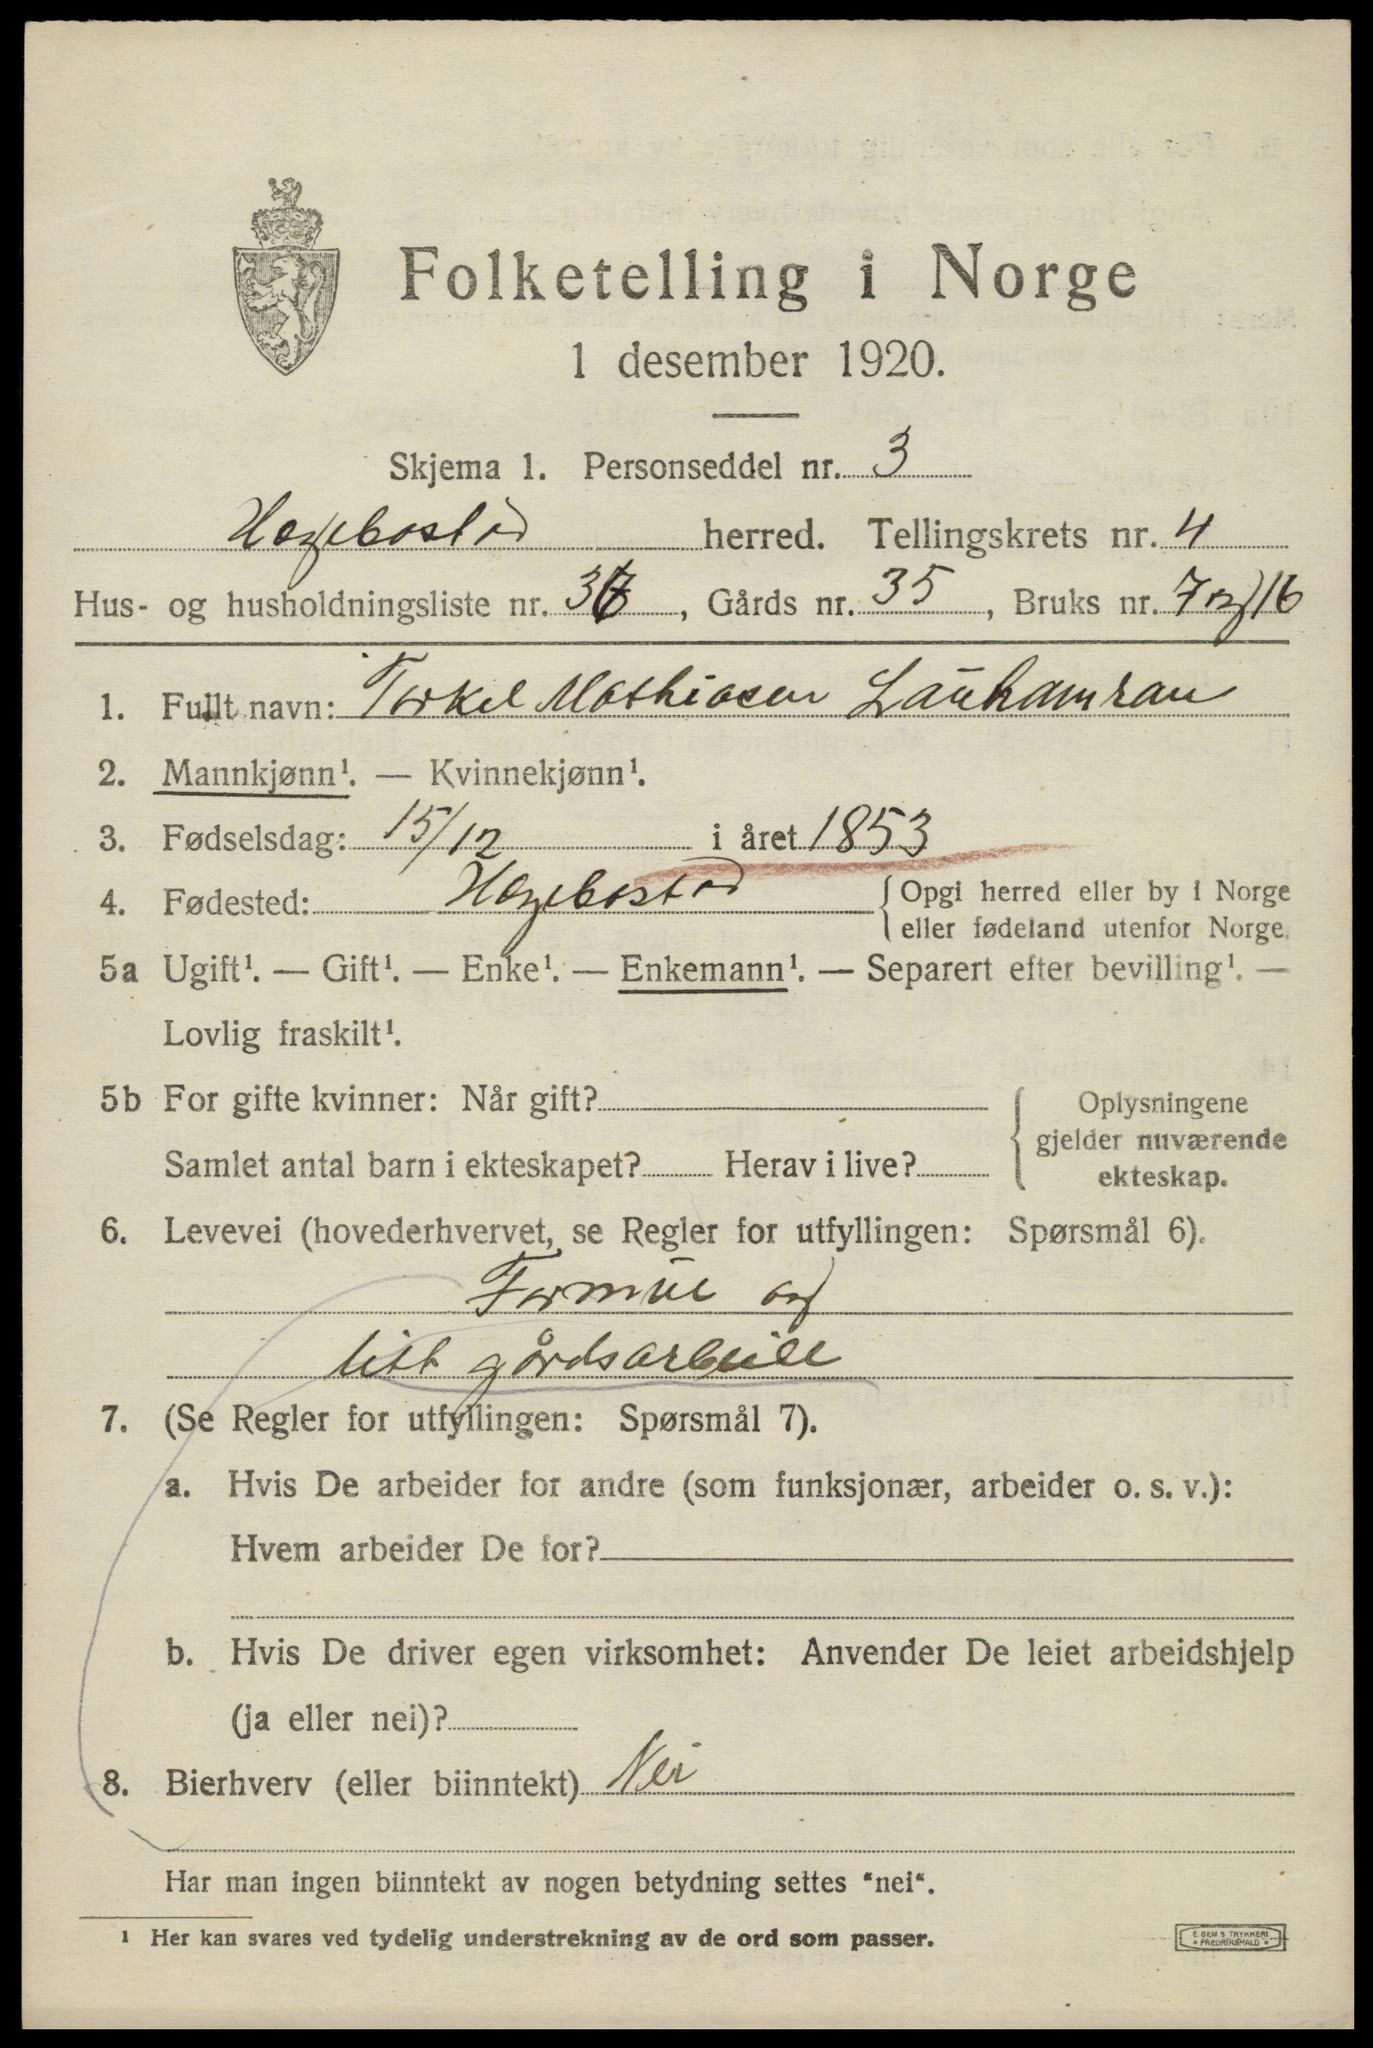 Folketelling i Norge
1 desember 1920.
Skjema 1. Personseddel nr. 3
Hægebostad herred. Tellingskrets nr. 4
Hus- og husholdningsliste nr. 36, Gårds nr. 35, Bruks nr. 7 og 16
1. Fullt navn: Torkel Mathiasen
2. Mannkjønn¹. — Kvinnekjønn¹.
3. Fødselsdag: 15/12 i året 1853
4. Fødested: Hægebostad { Opgi herred eller by i Norge
eller fødeland utenfor Norge.
5a Ugift¹. — Gift¹. — Enke¹. — Enkemann¹. — Separert efter bevilling¹. —
Lovlig fraskilt¹.
5b For gifte kvinner: Når gift? { Oplysningene
gjelder nuværende
ekteskap.
Samlet antal barn i ekteskapet? Herav i live?
6. Levevei (hovederhvervet, se Regler for utfyllingen: Spørsmål 6).
Formue og
litt gårdsarbeide
7. (Se Regler for utfyllingen: Spørsmål 7).
a. Hvis De arbeider for andre (som funksjonær, arbeider o. s. v.):
Hvem arbeider De for?
b. Hvis De driver egen virksomhet: Anvender De leiet arbeidshjelp
(ja eller nei)?
8. Bierhverv (eller biinntekt) Nei
Har man ingen biinntekt av nogen betydning settes "nei".
¹ Her kan svares ved tydelig understrekning av de ord som passer.
E. SEM'S TRYKKERI
FREDRIKSHALD